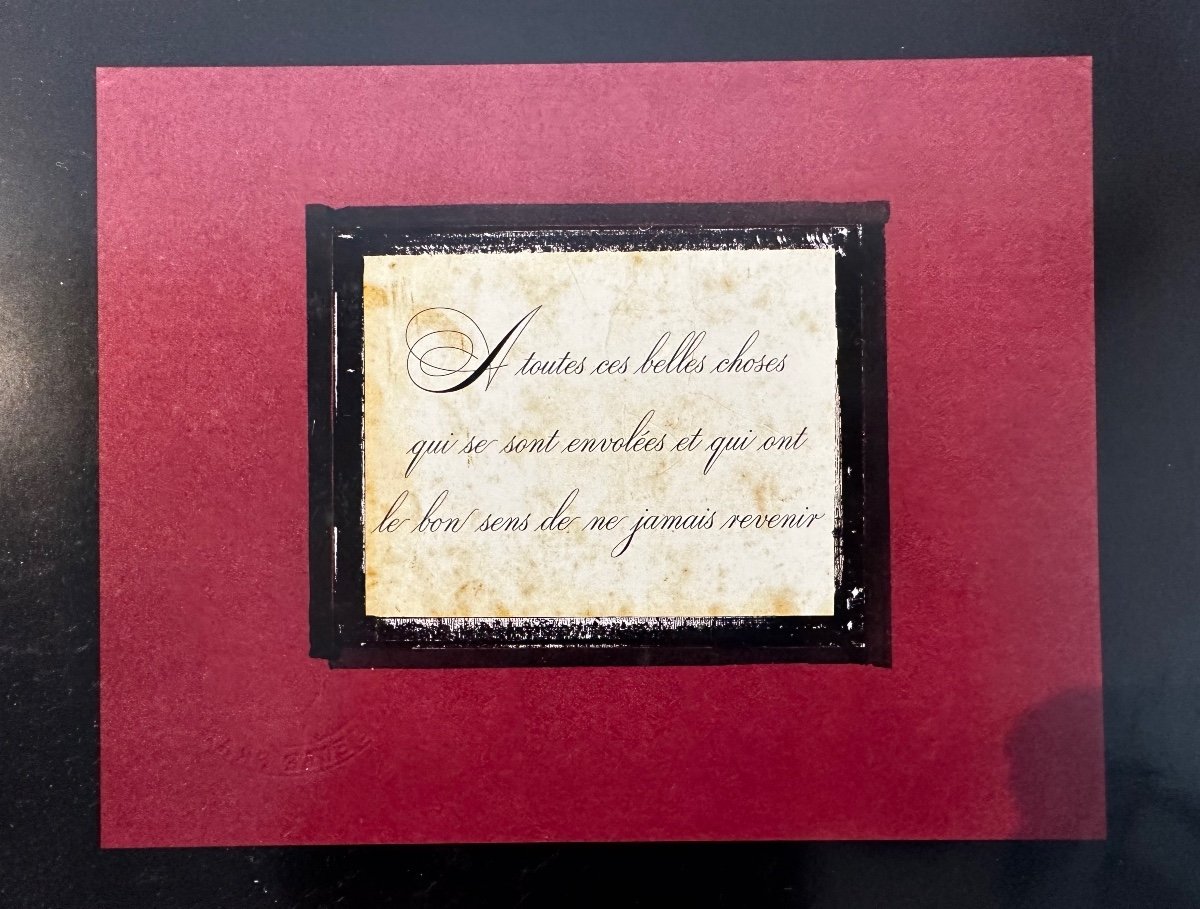 A toutes ces belles choses
qui se sont envolées et qui ont
le bon sens de ne jamais revenir